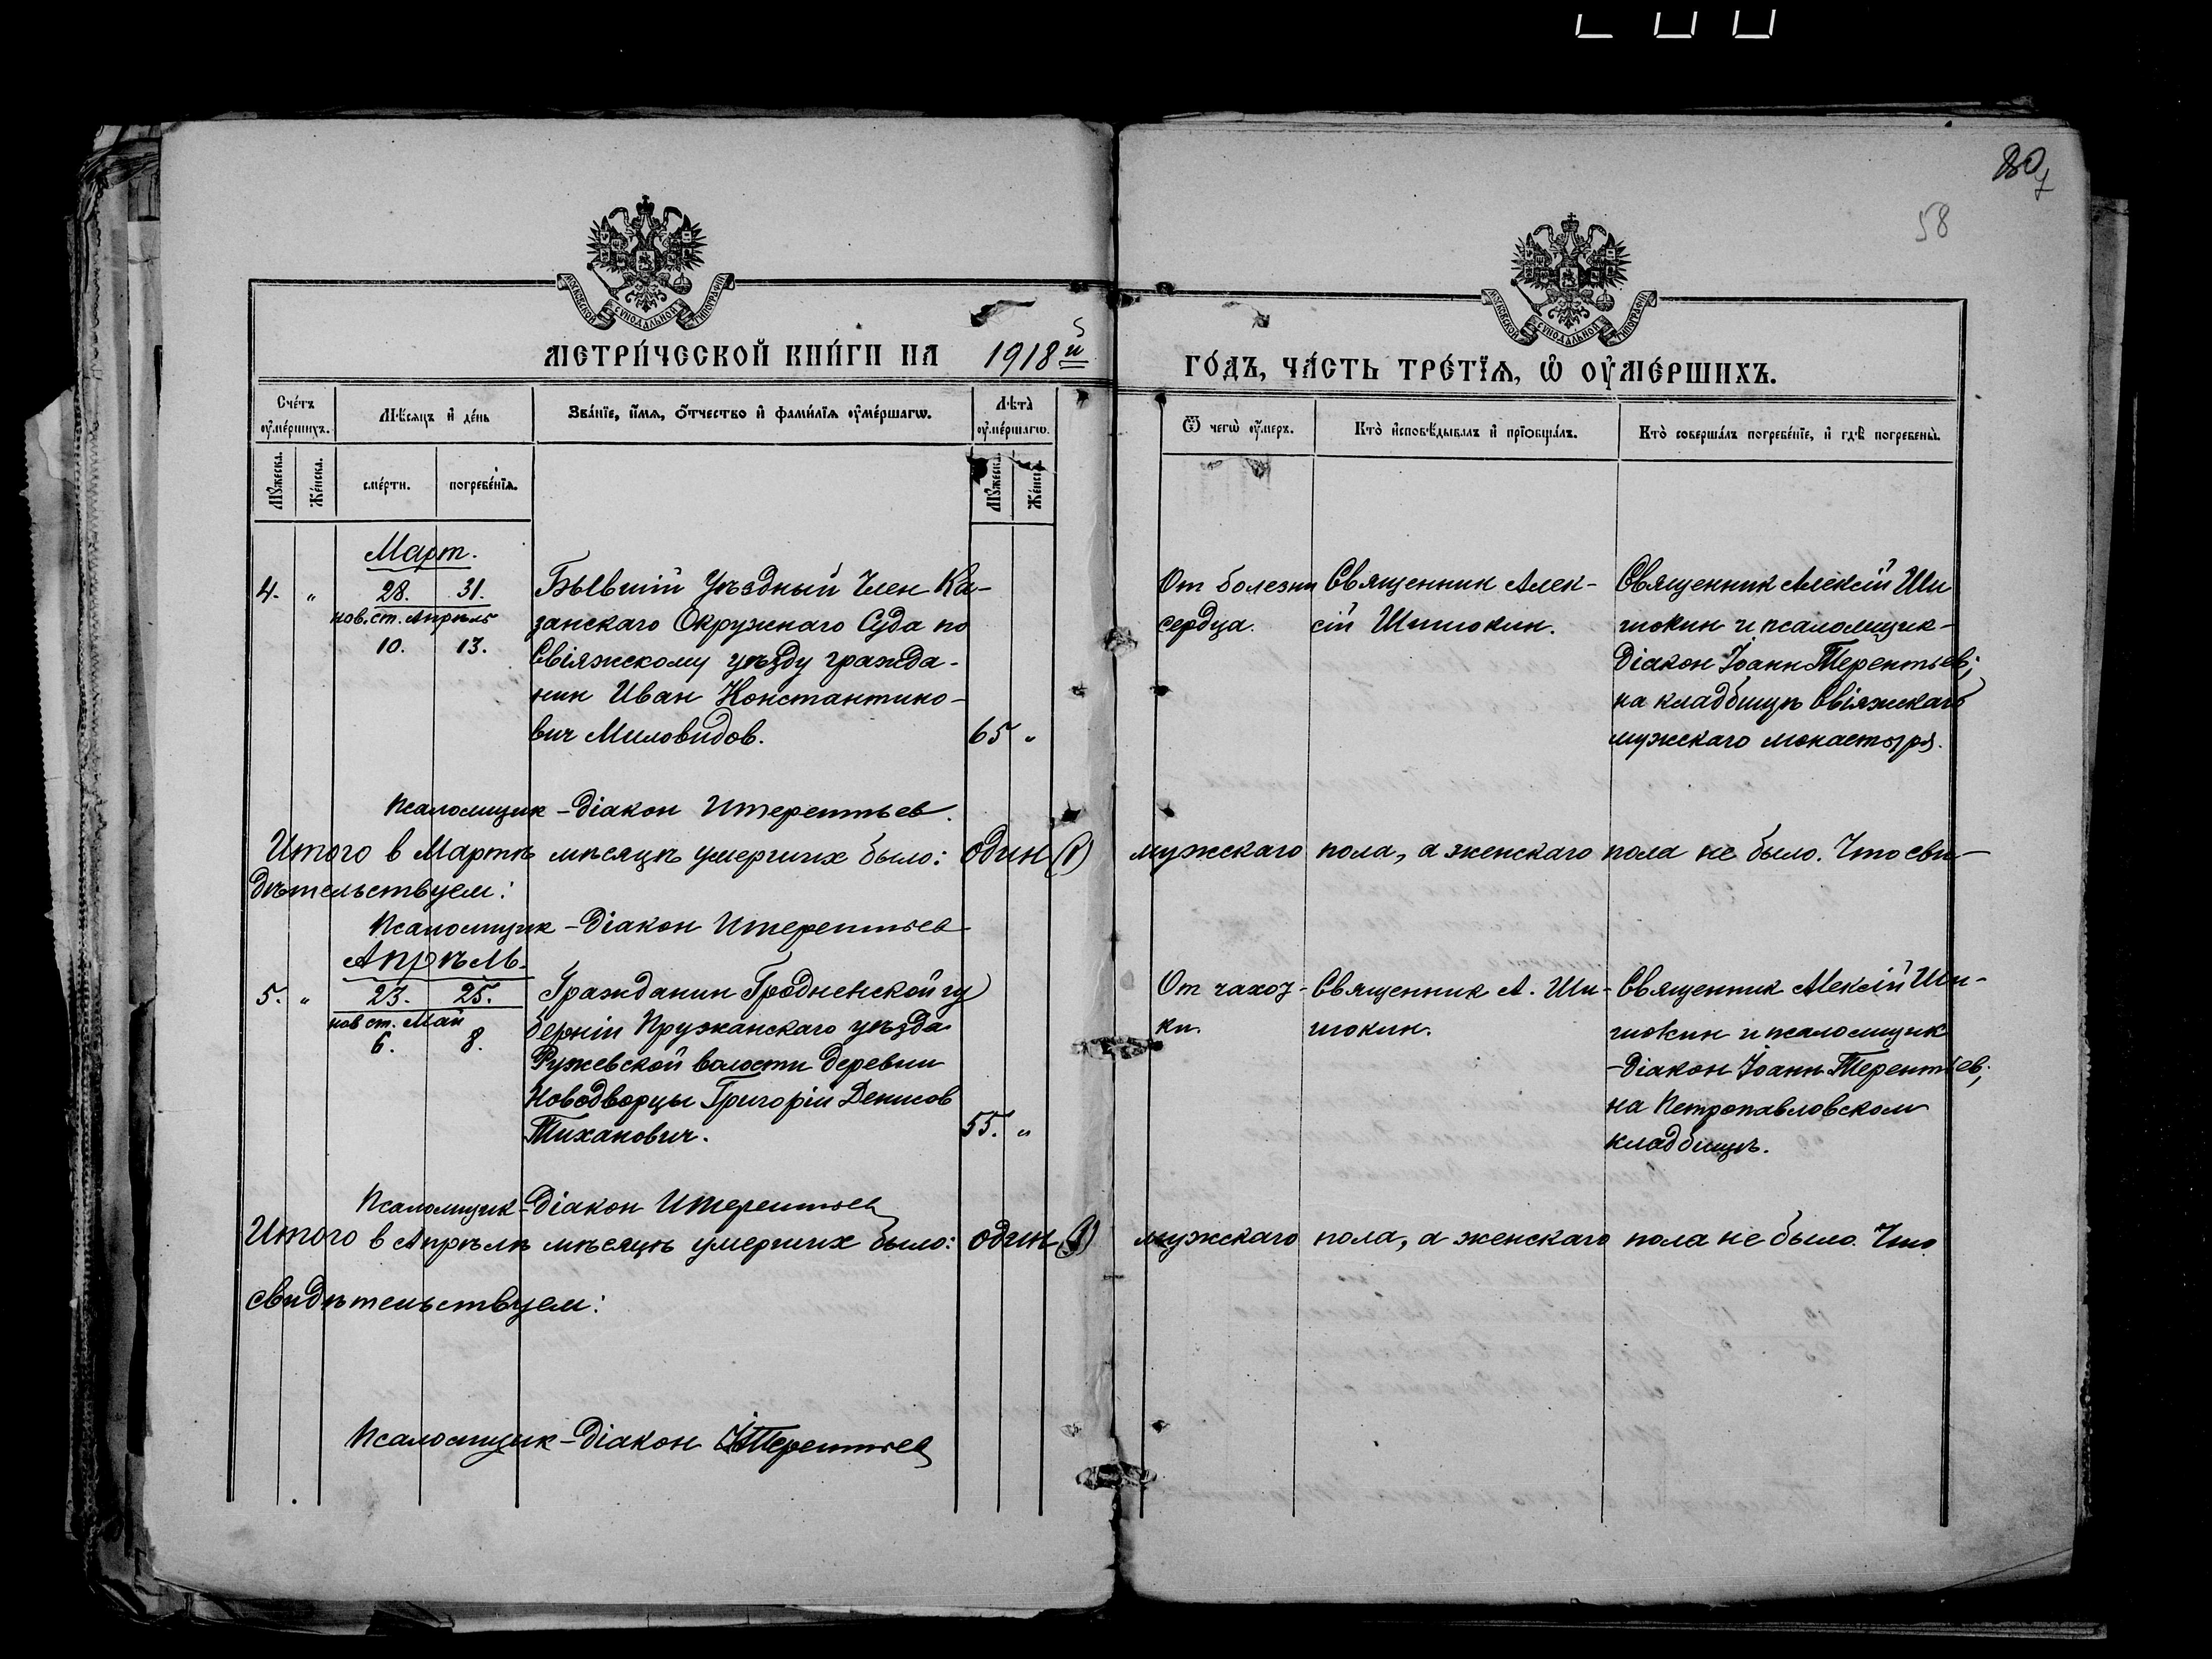 807
58
МОСКОВСКОЙ СѴНОДАЛЬНОЙ ТИПОГРАФІИ
МОСКОВСКОЙ СѴНОДАЛЬНОЙ ТИПОГРАФІИ
МЕТРИ́ЧЕСКОЙ КНИ́ГИ НА 1918й ГО́ДЪ, ЧА́СТЬ ТРЕ́ТІѦ, Ѡ ОУМЕ́РШИХЪ.
Сче́тъ оумершихъ.
Мѣсяцъ и де́нь
Зва́нїе, и́мѧ, о́тчество и фами́лїѧ оуме́ршагѡ.
Лѣта̀ оуме́ршагѡ.
Ѿ чегѡ̀ оу́меръ.
Кто̀ исповѣ́дывалъ и прїобща́лъ.
Кто̀ соверша́лъ погребе́нїе, и гдѣ̀ погребены̀.
Мꙋжеска. Же́нска. сме́рти. погребе́нїѧ. Мꙋжеска. Же́нска.
Март.
4. „ 28. 31.
нов. ст. Апрѣль
10. 13.
Бывшій Уѣздный Член Ка-
занскаго Окружнаго Суда по
Свіяжскому уѣзду гражда-
нин Иван Константино-
вич Миловидов. 65 „
От болезни
сердца.
Священник Алек-
сій Шишокин.
Священник Алексій Ши
шокин и псаломщик-
Діакон Іоанн Терентьев;
на кладбищѣ Свіяжскаго
мужскаго монастыря.
Псаломщик-Діакон ИТерентьев.
Итого в Мартѣ мѣсяцѣ умерших было: один (1) мужскаго пола, а женскаго пола не было. Что сви-
дѣтельствуем:
Псаломщик-Діакон ИТерентьев
Апрѣль.
5. „ 23. 25.
нов ст. Май
6. 8.
Гражданин Гродненской гу
берніи Пружанскаго уѣзда
Ружевской волости деревни
Новодворцы Григорій Денисов
Тиханович. 55. „
От чахот-
ки.
Священник А. Ши-
шокин.
Священник Алексій Ши-
шокин и псаломщик
-Діакон Іоанн Терентьев;
на Петропавловском
кладбищѣ.
Псаломщик-Діакон ИТерентьев
Итого в Апрѣлѣ мѣсяцѣ умерших было: один (1) мужскаго пола, а женскаго пола не было. Что
свидѣтельствуем:
Псаломщик-Діакон ИТерентьев